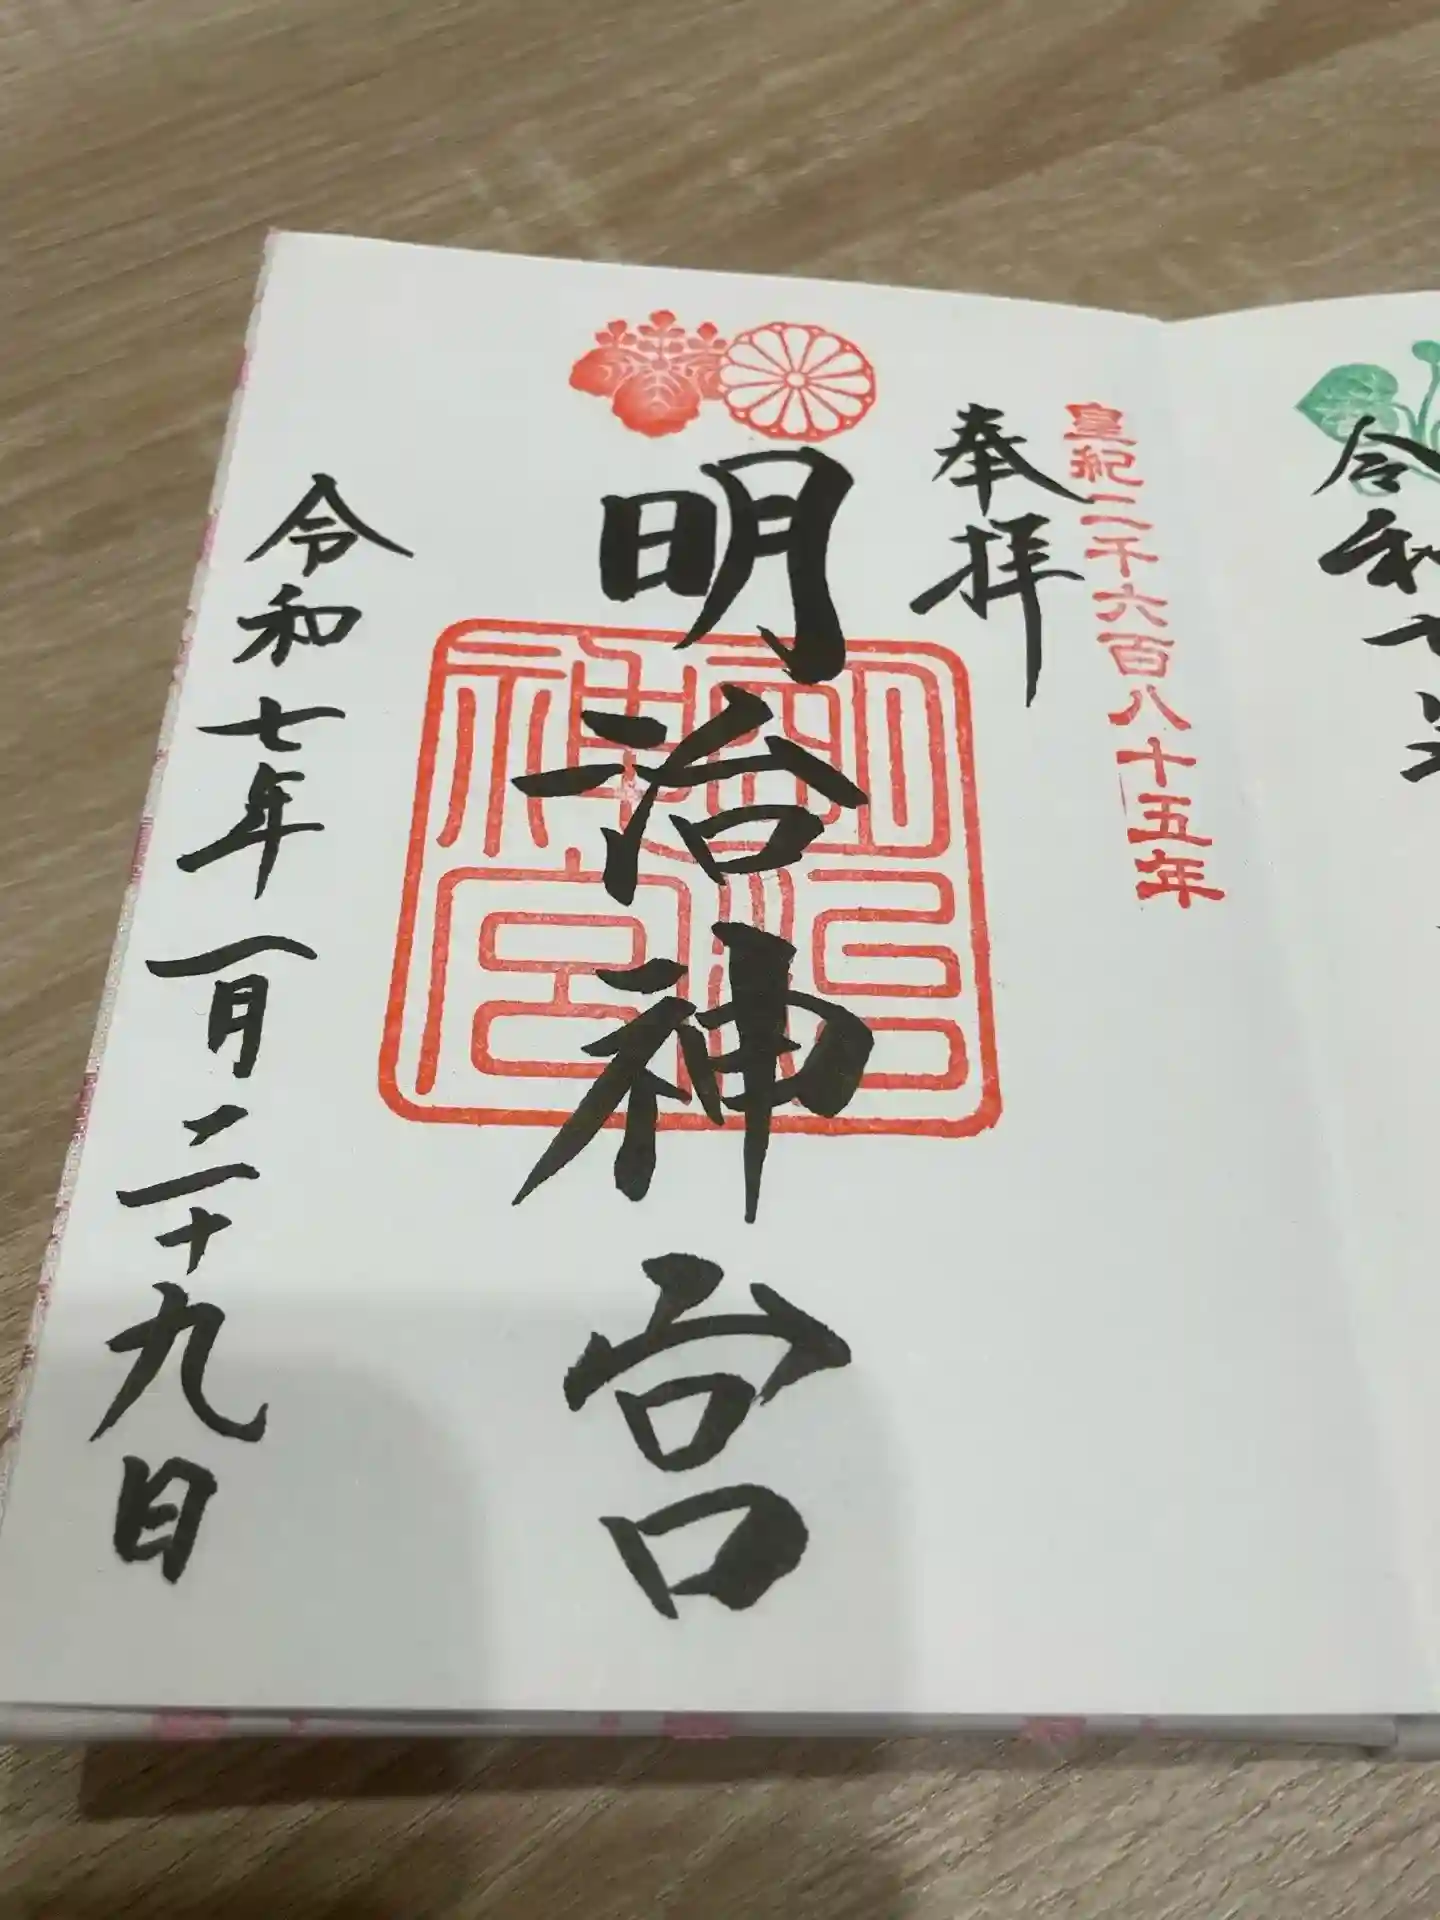 皇紀二千六百八十五年
奉拝
明治神宮
令和七年一月二十九日
令和七